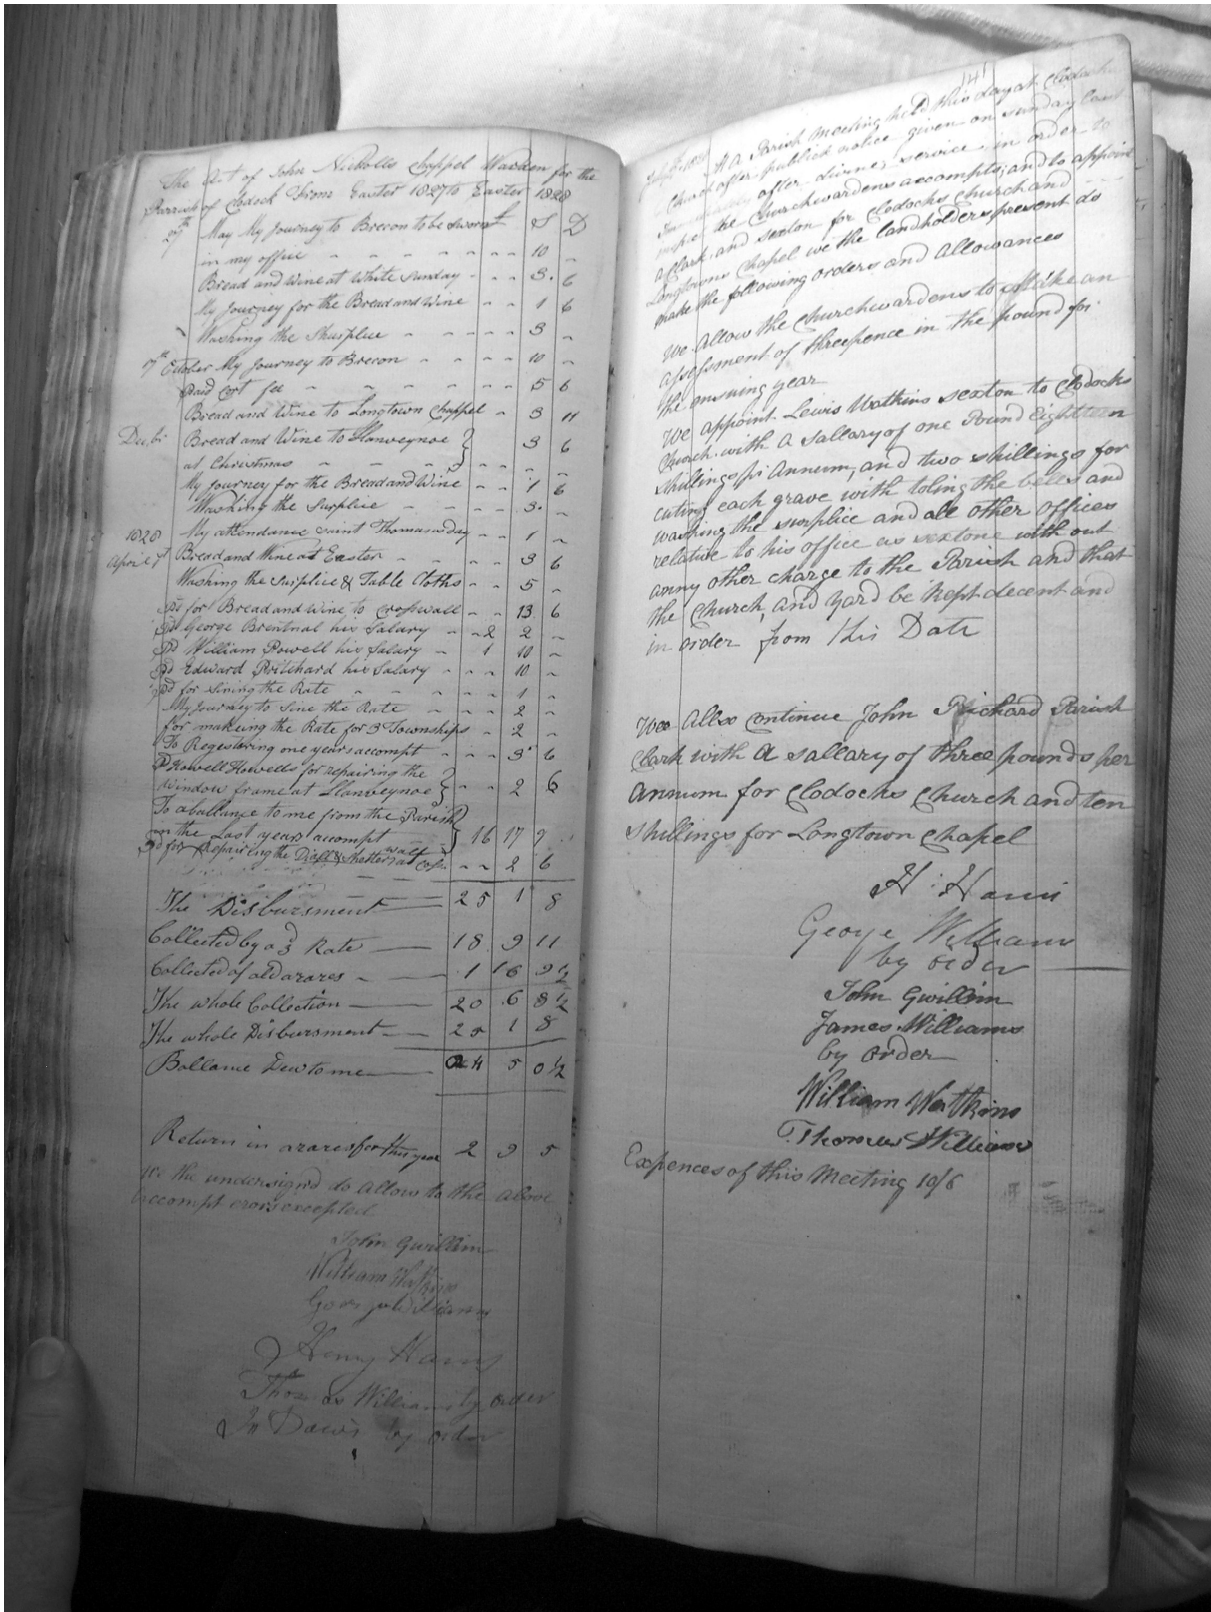 The Act of John Nickolls Chappel Warden for the
Parrish of Clodock From Easter 1827 to Easter 1828
27th May My Journey to Brecon to be sworn S D
in my office 10
Bread and Wine at White Sunday 3 6
My Journey for the Bread and Wine 1 6
Washing the Shurplice 3
7th October My Journey to Brecon 10
Paid Cort fee 5 6
Bread and Wine to Longtown Chappel 3 11
Decbr Bread and Wine to Llanveynoe 3 6
at Christmas
My Journey for the Bread and Wine 1 6
Washing the Surplice 3
1828 My attendance saint Thomas day 1
April 6th Bread and Wine at Easter 3 6
Washing the Surplice & Table Cloths 5
Pd for Bread and Wine to Craswall 13 6
Pd George Brentnal his Salary 2 2
Pd William Powell his Salary 1 10
Pd Edward Pritchard his Salary 10
Pd for Sining the Rate 1
My Journey to Sine the Rate 2
for makeing the Rate for 3 Townships 2
To Regestering one years accompt 3 6
Pd Howell Howells for repairing the
Window frame at Llanveynoe 2 6
To a ballance to me from the Parish
in the Last years accompt 16 17 9
Pd for Repairing the 2 6
The Disbursment 25 1 8
Collected by a 3d Rate 18 9 11
Collected of old arares 1 16 9½
The whole Collection 20 6 8½
The whole Disbursment 25 1 8
Ballance Dew to me 4 5 0½
Return in arares for this year 2 9 5
We the undersigned do allow to the above
accompt erors excepted
John Gwillim
William Watkins
George Williams
Henry Harris
Thomas Williams by order
Jn Davis by order
141
At a Parish Meeting held this day at Clodochs
Church after publick notice given on sunday last
after divine service in order to
the Churchwardens accompts; and to appoint
a Clark and sexton for Clodochs Church and
Longtowns Chapel we the landholders present do
make the following orders and allowances
We Allow the Churchwardens to Make an
assessment of threepence in the pound for
the ensuing year
We appoint Lewis Watkins sexton to Clodochs
Church with a sallary of one Pound Eighteen
shillings pr Annum, and two shillings for
cuting each grave with toling the bells and
washing the surplice and all other offices
relative to his office as sextone with out
anny other charge to the Parish and that
the Church, and Yard be kept decent and
in order from this Date
Wee Allso Continue John Prichard Parish
Clark with a sallary of three pounds per
annum for Clodochs Church and ten
shillings for Longtown Chapel
H: Harris
George Williams
by order
John Gwillim
James Williams
by order
William Watkins
Thomas Williams
Expences of this Meeting 10/6